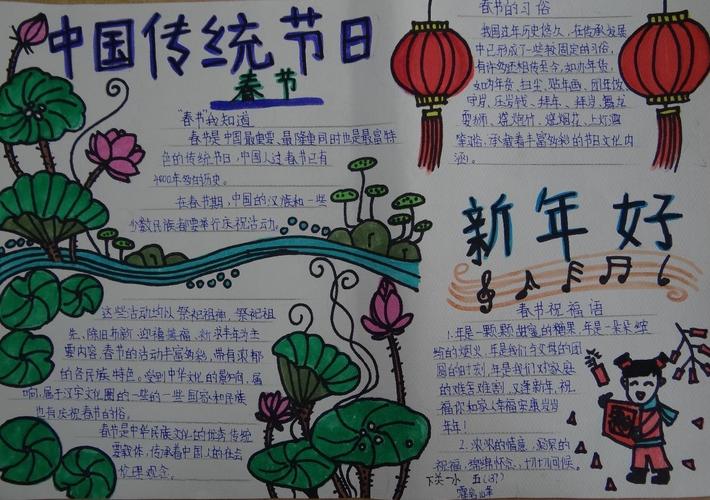 中国传统节日
春节
"春节"我知道
春节是中国最重要、最隆重同时也是最富特
色的传统节日，中国人过春节已有
4000年多的历史。
在春节期，中国的汉族和一些
少数民族都要举行庆祝活动。
这些活动均以祭祀祖神、祭祀祖
先、除旧布新、迎禧接福、祈求丰年为主
要内容。春节的活动丰富多彩，带有浓郁
的各民族特色。受到中华文化的影响，属
响，属于汉字文化圈的一些的一些国家和民族
也有庆祝春节的俗。
春节是中华民族文化的优秀传统
重要载体，传承着中国人的社会
伦理观念。
春节的习俗
我国过年历史悠久，在传承发展
中已形成了一些较固定的习俗，
有许多还相传至今，如办年货，
扫尘，贴年画，团年饭，
守岁，压岁钱，拜年、拜岁，舞龙
舞狮，烧炮竹，烧烟花，上灯酒
承载着丰富多彩的节日文化内
涵。
新年好
春节祝福语
1、年是一颗颗甜蜜的糖果，年是一朵朵缤
纷的烟火，年是我们与父母的团
圆的时刻，年是我们对家庭
的难舍难割，又逢新年，祝
福你和家人幸福安康岁岁
年年！
2、浓浓的情意，深深的
祝福，绵绵怀念，
下关一小 五(3)